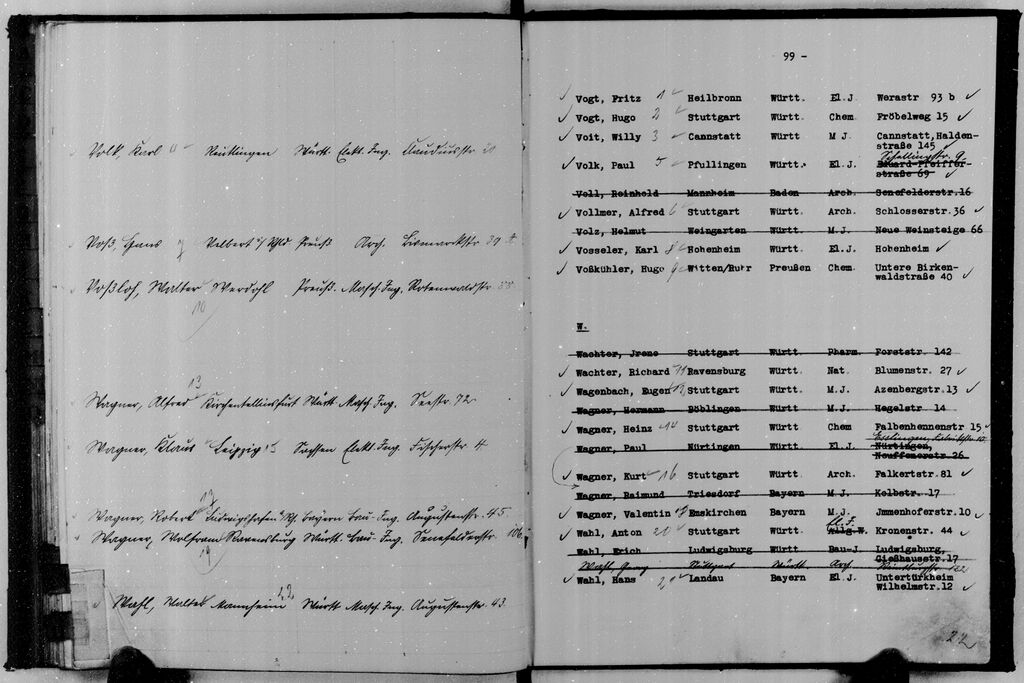 Volk, Karl 4 Reutlingen Württ. Elekt. Ing. Claudiusstr. 20
Voß, Hans 7 Velbert i/Rhld Preuß Arch. Bismarckstr. 39
Voßloh, Walter Werdohl Preuß. Masch. Ing. Rotenwaldstr.
10
13
Wagner, Alfred Kirchentellinsfurt Württ. Masch. Ing. Seestr. 72
Wagner, Klaus Leipzig 15 Sachsen Elekt. Ing. Fischerstr. 4
17
Wagner, Robert Ludwigshafen a/Rh. Bayern Bau-Ing. Augustenstr. 45
Wagner, Wolfram Ravensburg Württ. Bau-Ing. Senefelderstr. 106
19
22
Wahl, Walter Mannheim Württ Masch. Ing. Augustenstr. 43.
99 -
Vogt, Fritz 1 Heilbronn Württ. El.J. Werastr 93 b
Vogt, Hugo 2 Stuttgart Württ. Chem. Fröbelweg 15
Voit, Willy 3 Cannstatt Württ M J. Cannstatt,Halden-
straße 145
Schellingstr. 9.
Volk, Paul 5 Pfullingen Württ. El.J. Eduard-Pfeiffer-
straße 69
Voll, Reinhold Mannheim Baden Arch. Senefelderstr.16
Vollmer, Alfred 6 Stuttgart Württ. Arch. Schlosserstr.36
Volz, Helmut Weingarten Württ. M.J. Neue Weinsteige 66
Vosseler, Karl 8 Hohenheim Württ. El.J. Hohenheim
Voßkühler, Hugo 9 Witten/Ruhr Preußen Chem. Untere Birken-
waldstraße 40
W.
Wachter, Jrene Stuttgart Württ. Pharm. Forststr. 142
Wachter, Richard 11 Ravensburg Württ. Nat. Blumenstr. 27
Wagenbach, Eugen 12 Stuttgart Württ. M.J. Azenbergstr.13
Wagner, Hermann Böblingen Württ M.J. Hegelstr 14
Wagner, Heinz 14 Stuttgart Württ Chem Falbenhennenstr 15
Esslingen
Wagner, Paul Nürtingen Württ. El.J. Nürtingen,
Neuffenerstr.26
Wagner, Kurt 16 Stuttgart Württ. Arch. Falkertstr.81
Wagner, Raimund Triesdorf Bayern M.J. Kolbstr. 17
Wagner, Valentin 18 Emskirchen Bayern M.J. Jmmenhoferstr.10
El.J.
Wahl, Anton 20 Stuttgart Württ. Allg.W. Kronenstr. 44
Wahl, Erich Ludwigsburg Württ Bau-J Ludwigsburg,
Gießhausstr.17
Wahl, Georg Stuttgart Württ Arch.
Wahl, Hans 21 Landau Bayern El.J. Untertürkheim
Wilhelmstr.12
22